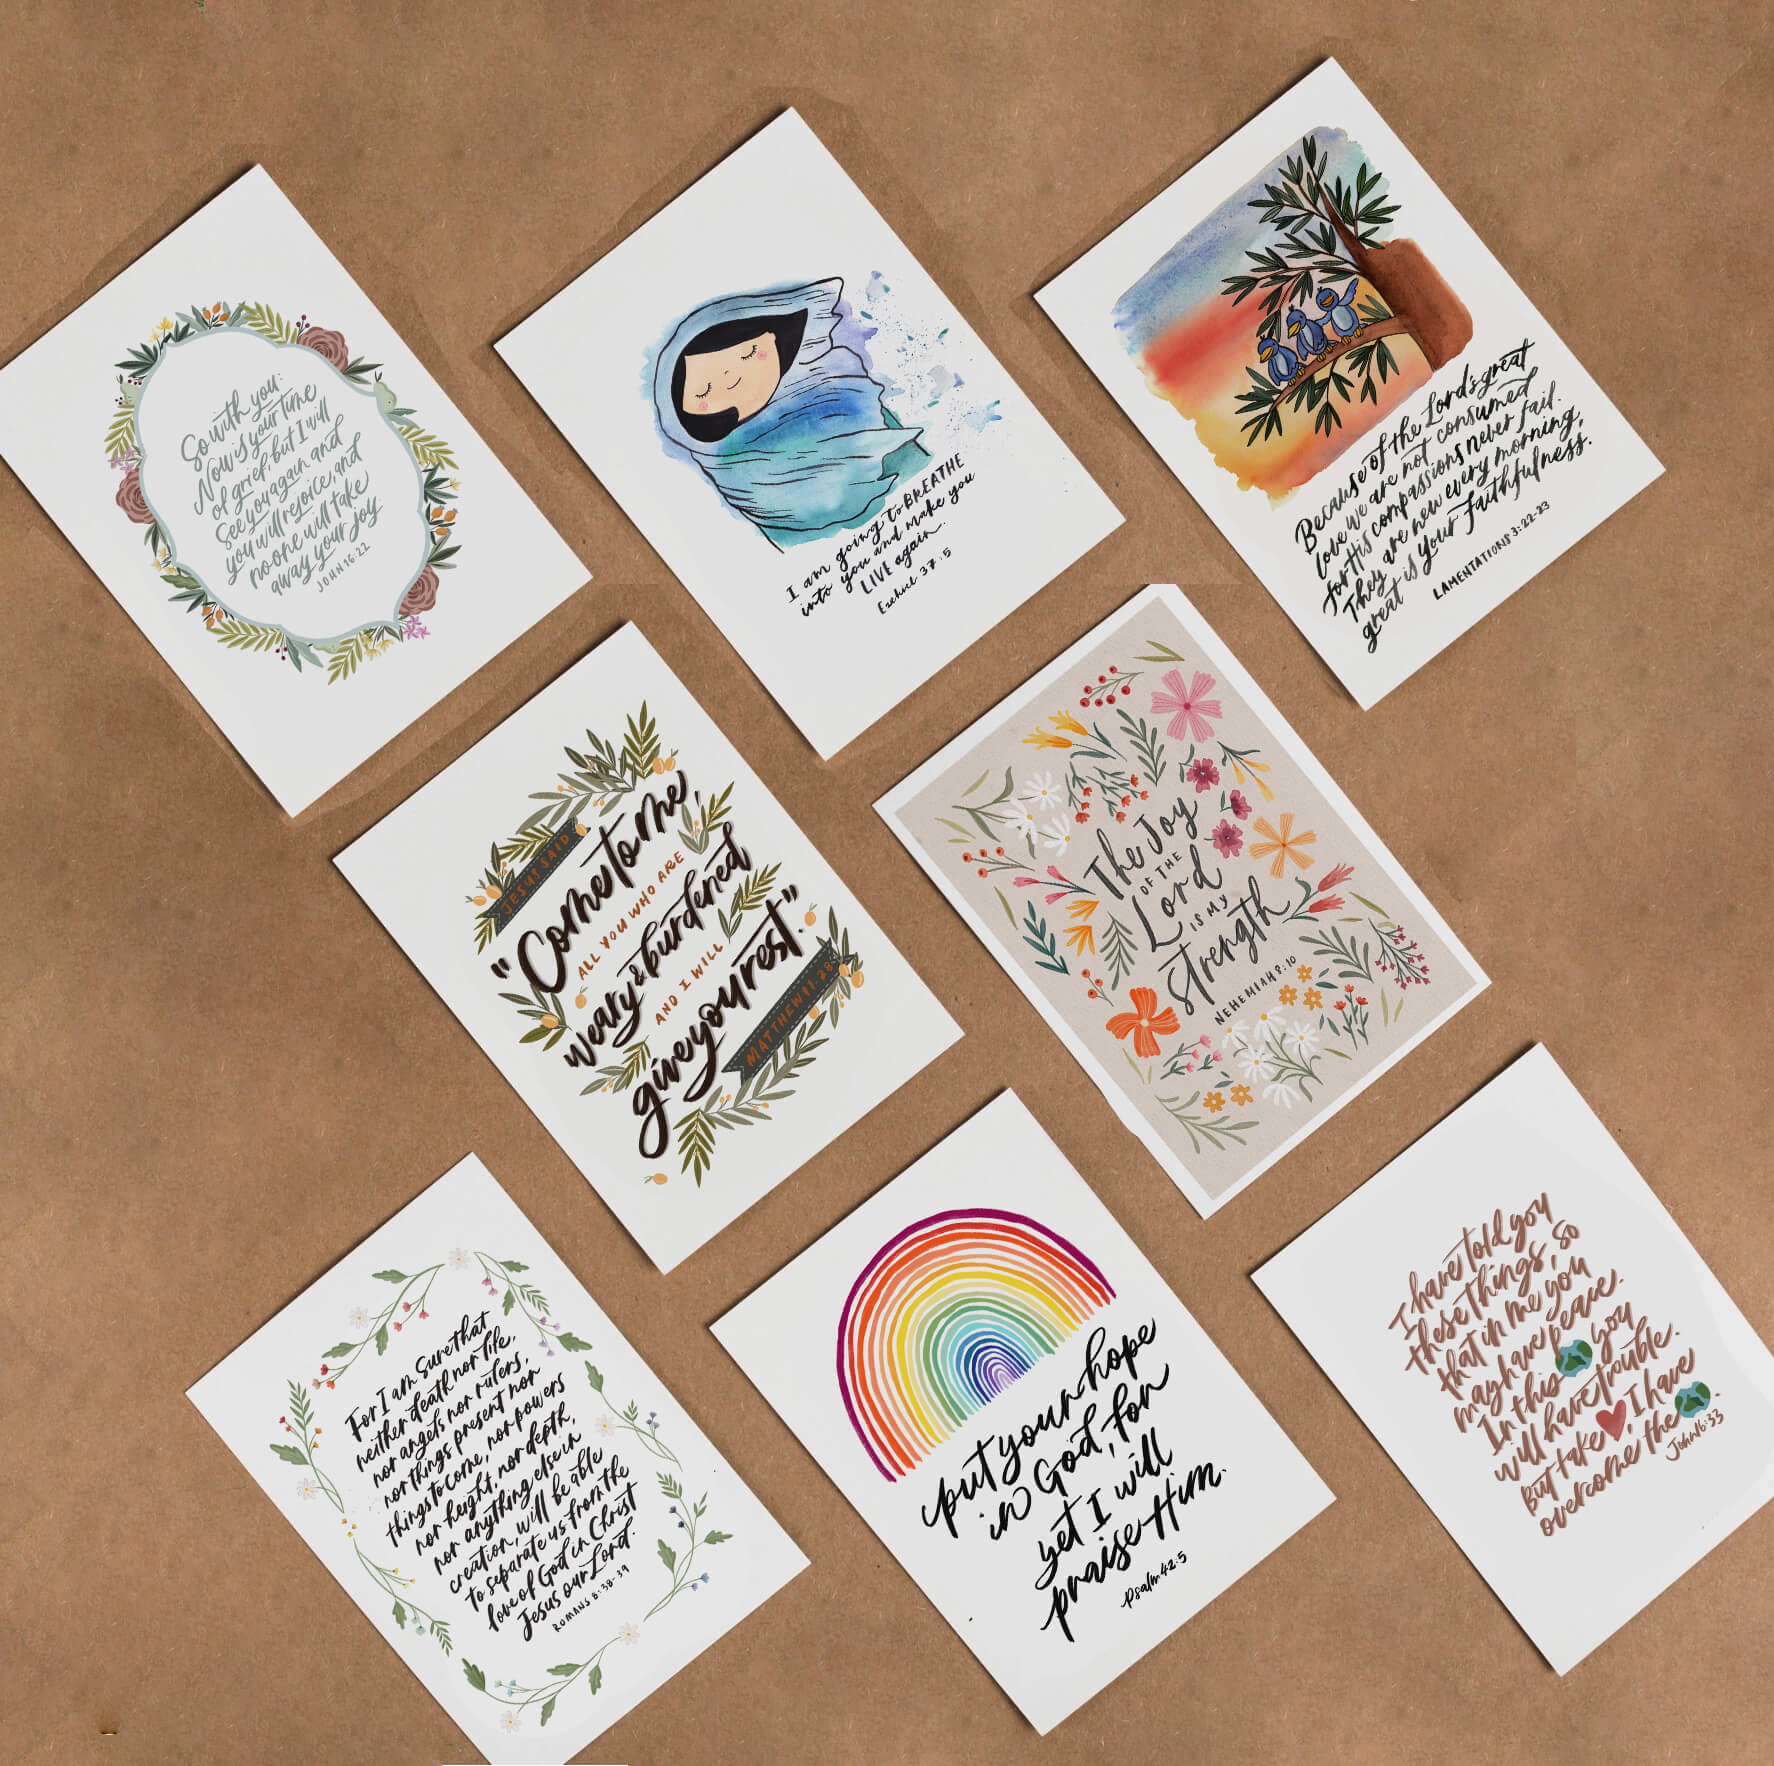 So with you:
Now is your time
of grief, but I will
see you again and
you will rejoice, and
no one will take
away your joy
JOHN 16:22
I am going to BREATHE
into you and make you
LIVE again.
Ezekiel 37:5
Because of the Lord's great
love we are not consumed
for His compassions never fail.
They are new every morning;
great is your faithfulness.
LAMENTATIONS 3:22-23
JESUS SAID
"Come to me,
ALL YOU WHO ARE
weary & burdened
AND I WILL
give you rest."
MATTHEW 11:28
The Joy
OF THE
Lord
IS MY
strength
NEHEMIAH 8:10
For I am sure that
neither death nor life,
nor angels nor rulers,
nor things present nor
things to come, nor powers
nor height, nor depth,
nor anything else in
creation, will be able
to separate us from the
love of God in Christ
Jesus our Lord.
ROMANS 8:38-39
put your hope
in God, for
yet I will
praise Him.
Psalm 42:5
I have told you
these things, so
that in me you
may have peace.
In this you
will have trouble.
But take I have
overcome the .
John 16:33